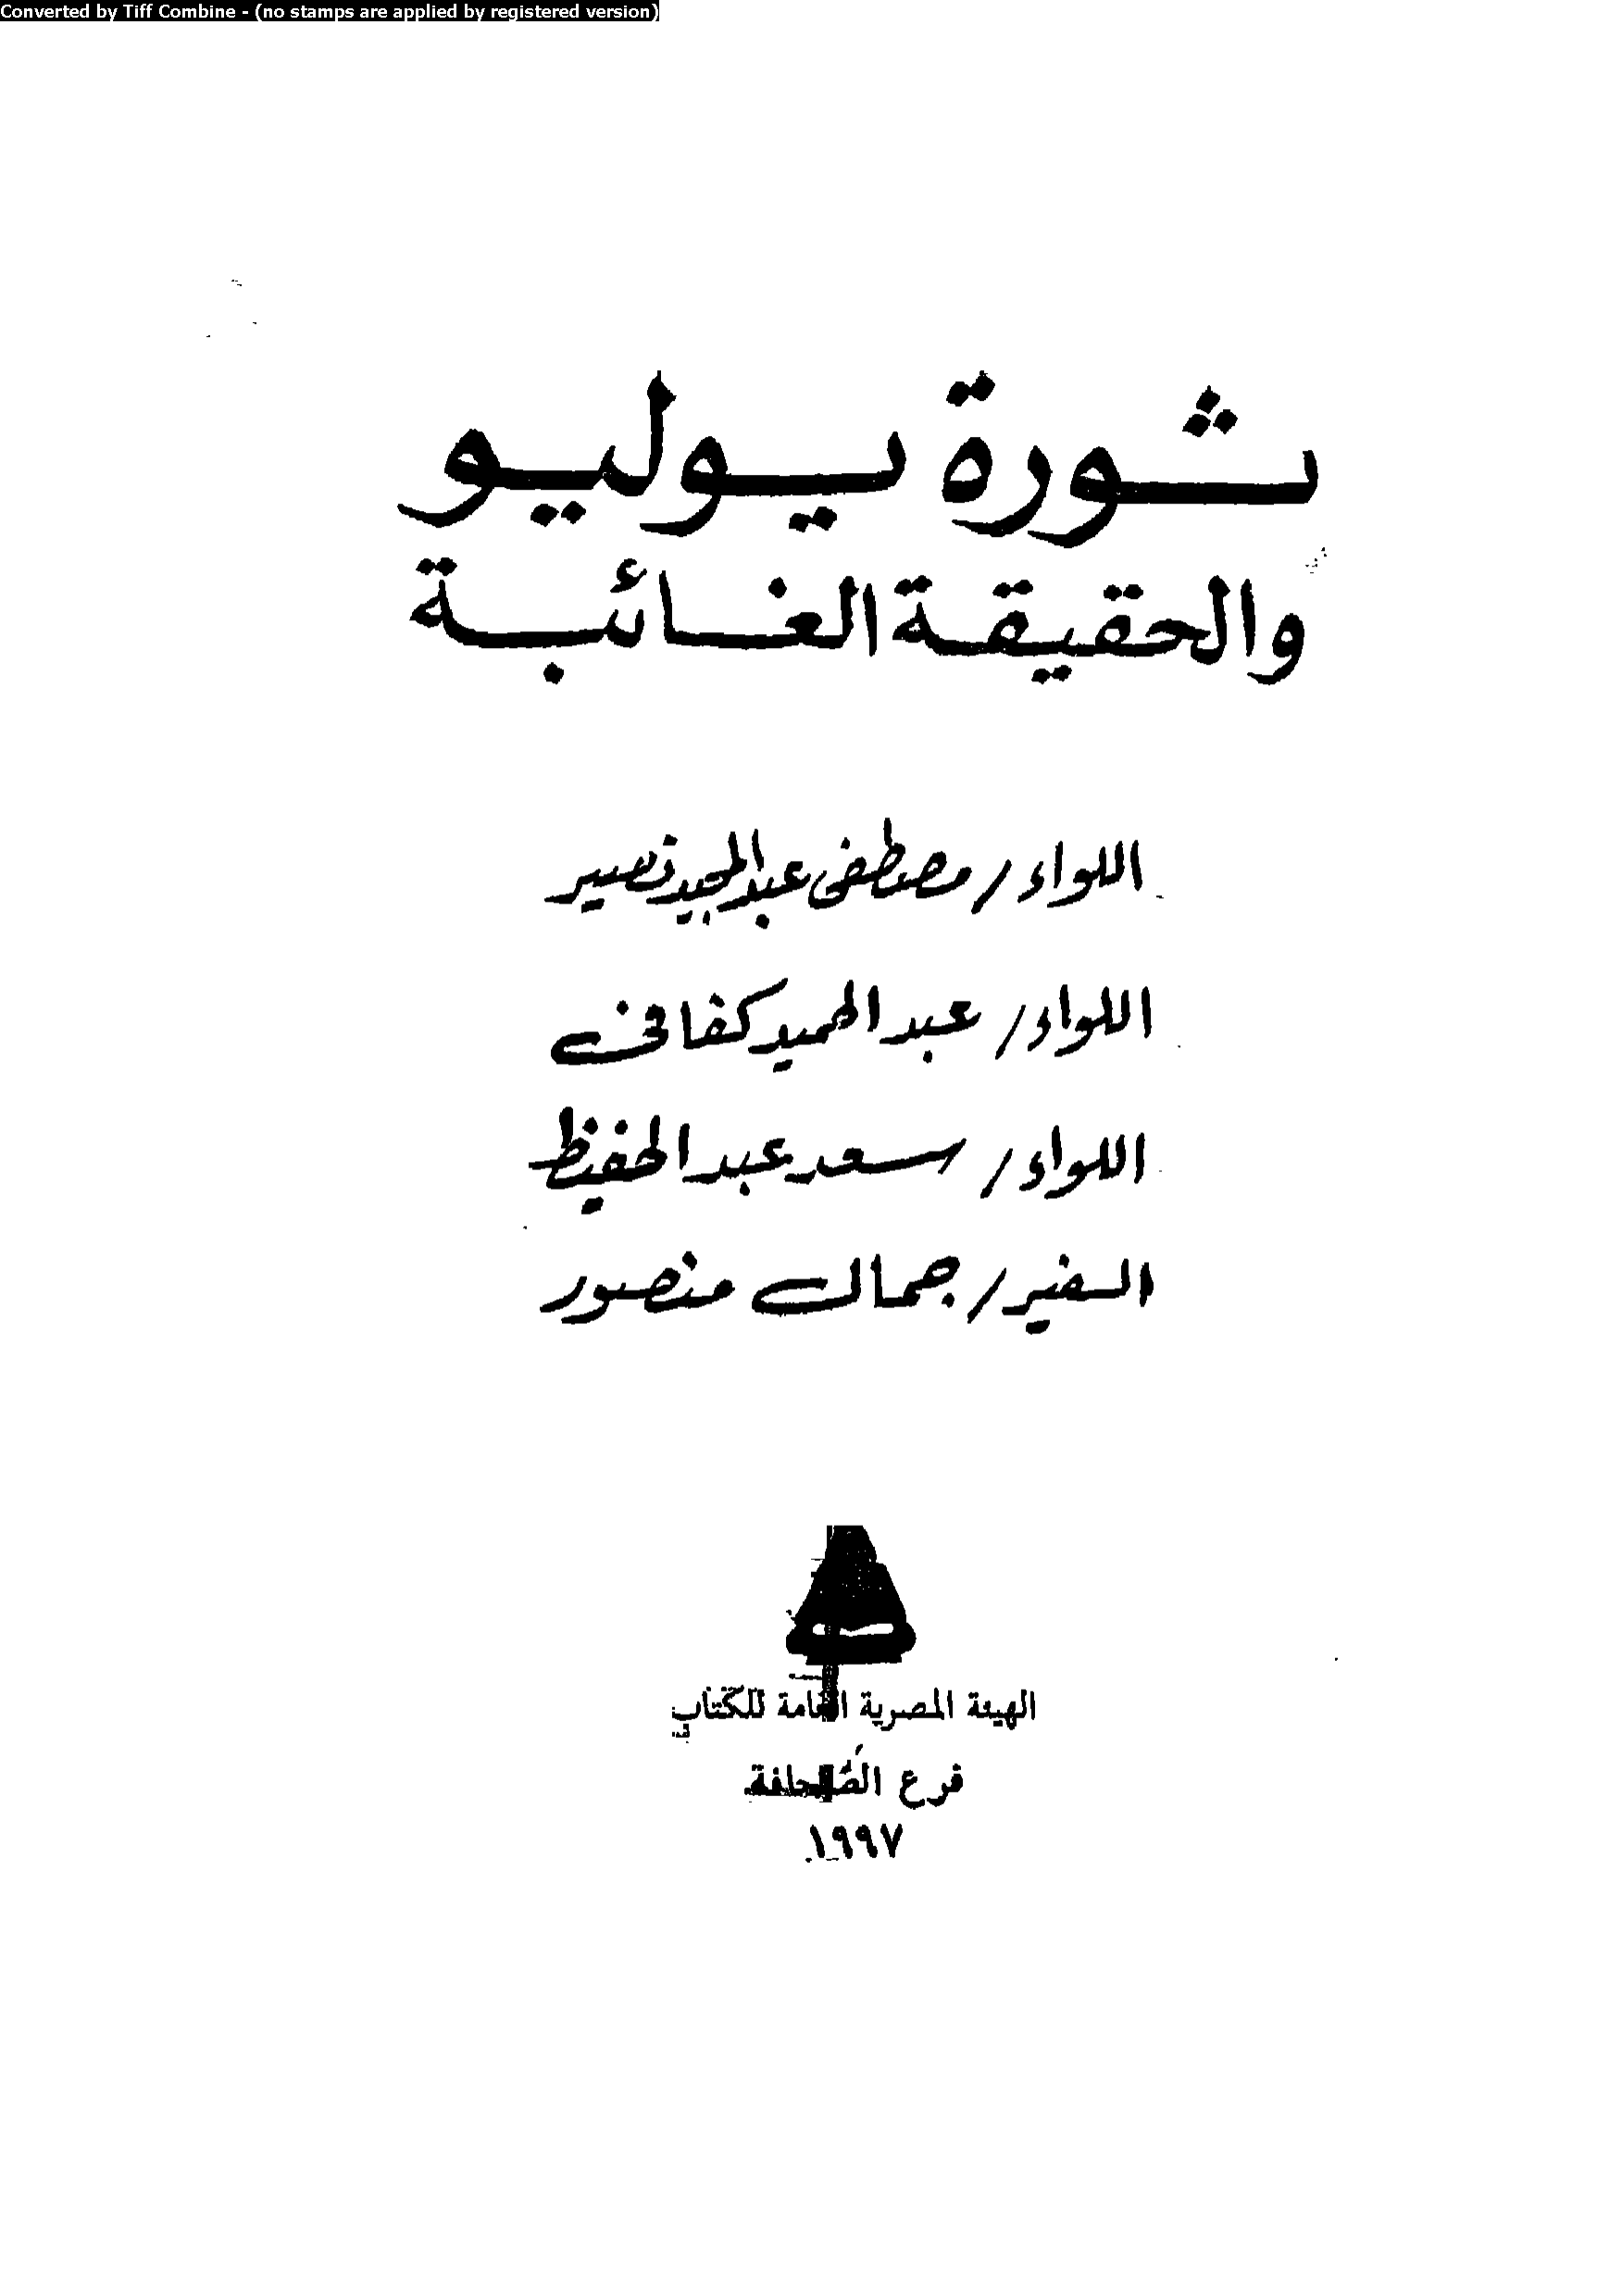 Converted by Tiff Combine - (no stamps are applied by registered version)
ثورة يوليو
والحقيقة الغائبة
اللواء / مصطفى عبد المجيد نصير
اللواء / عبد الحميد كفافى
اللواء / سعد عبد الحفيظ
السفير / جمال منصور
الهيئة المصرية العامة للكتاب
فرع الصحافة
١٩٩٧